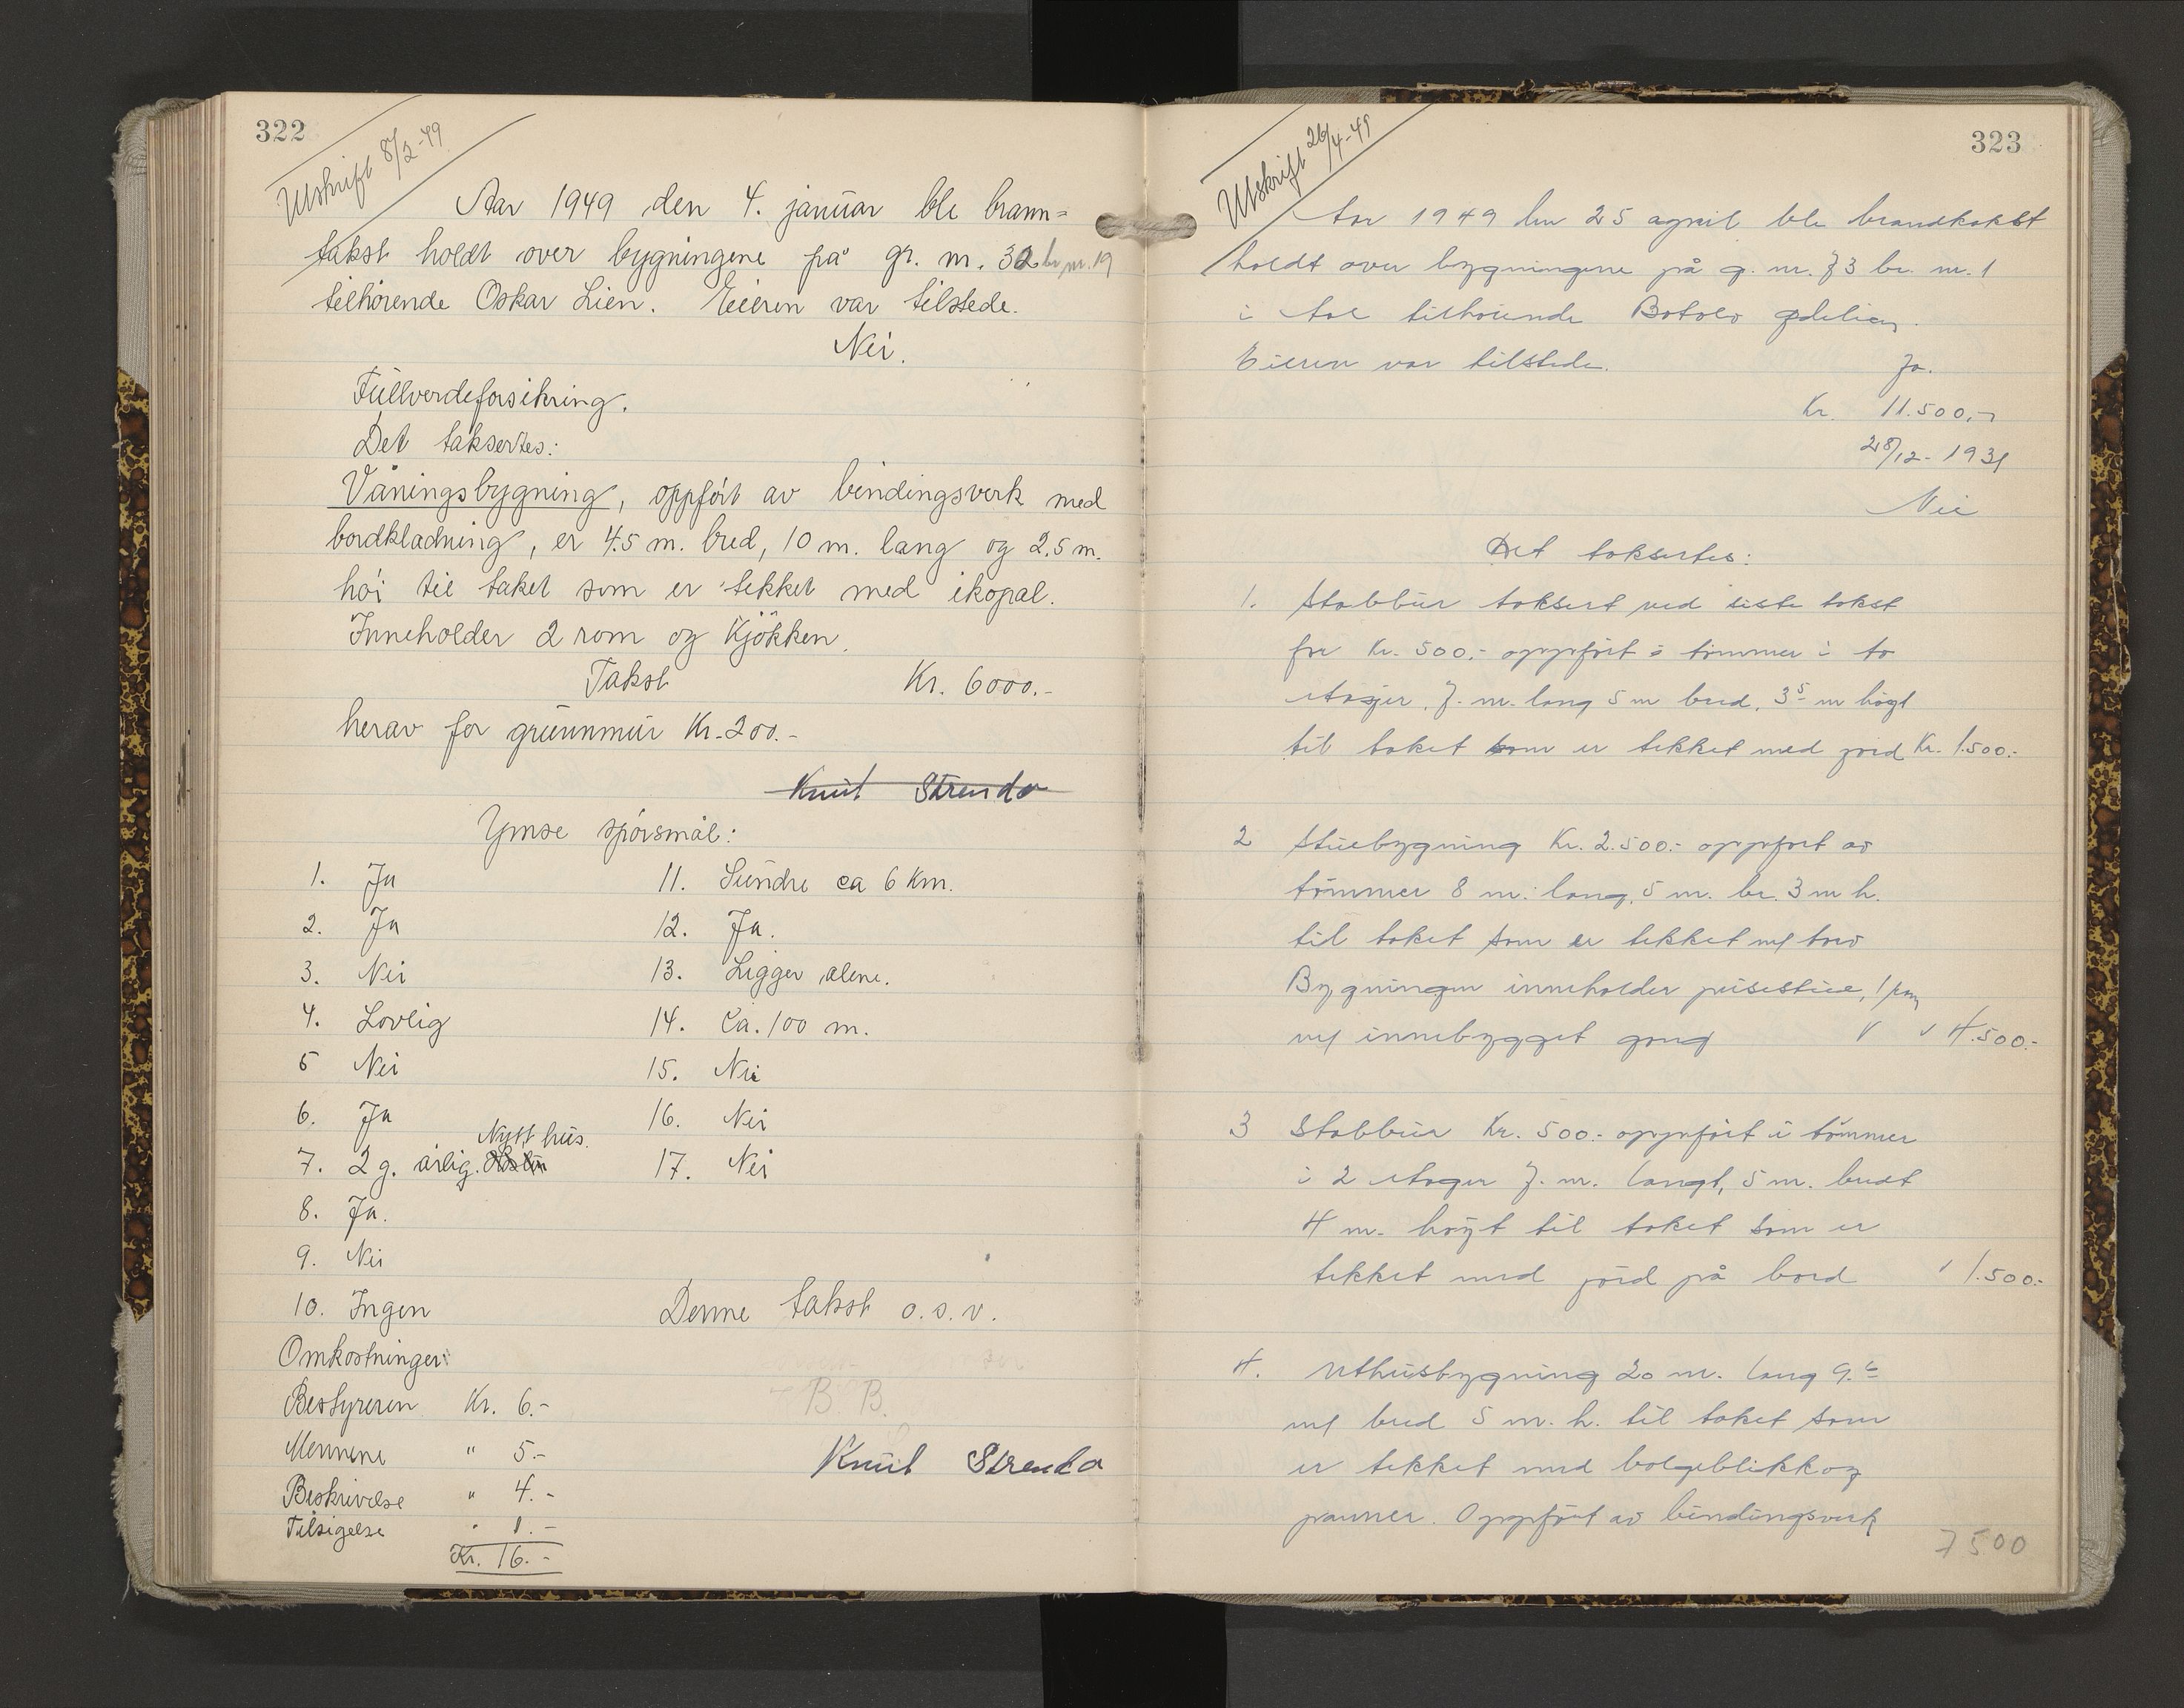 322
Utskrift 8/2-49
Aar 1949 den 4. januar ble brann=
takst holdt over bygningene på gr. nr. 32 br. nr. 19
tilhörende Oskar Lien. Eieren var tilstede.
Nei.
Fullverdeforsikring.
Det taksertes:
Våningsbygning, oppfört av bindingsverk med
bordkladning, er 4.5 m. bred, 10 m. lang og 2,5 m.
höi til taket som er tekket med ikopal.
Inneholder 2 rom og Kjökken.
Takst Kr. 6000.-
herav for grunnmur Kr. 200.-
Knut Strenda
Ymse spörsmål:
1. Ja
2. Ja
3. Nei
4. Lovlig
5 Nei
6. Ja
7. 2 g. årlig. Nytt hus.
8. Ja.
9. Nei
10. Ingen
11. Sundre ca 6 Km.
12. Ja.
13. Ligger alene.
14. Ca. 100 m.
15. Nei
16. Nei
17. Nei
Denne takst o.s.v.
Omkostninger:
Bestyreren Kr. 6.-
Mennene " 5.-
Beskrivelse " 4.-
Tilsigelse " 1.-
Kr. 16.-
B. B.
Knut Strenda
323
Utskrift 26/4-49
Aar 1949 den 25 april ble brandtakst
holdt over bygningene på g. nr. 73 br. nr. 1
i Aal tilhörende Botolv
Eieren var tilstede. Ja.
Kr. 11.500,-
28/12-1931
Nei
Det taksertes:
1. Stabbur taksert ved siste takst
for Kr. 500.- oppfört i tömmer i to
etasjer, 7. m. lang 5 m bred, 3.5 m högt
til taket som er tekket med jord Kr. 1.500.-
2 Stuebygning Kr. 2.500.- oppfört av
tömmer 8 m. lang, 5 m. br. 3 m h.
til taket som er tekket m/ torv
Bygningen inneholder peisestue, 1
m/ innebygget gang " " 4.500.-
3 Stabbur Kr. 500.- oppfört i tömmer
i 2 etager 7. m. langt, 5 m. bredt
4 m. höyt til taket som er
tekket med jord på bord " 1.500.-
4. Uthusbygning 20 m. lang 9.6
m/ bred 5 m. h. til taket som
er tekket med bolgeblikk og
panner. Oppfört av bindingsverk
7500